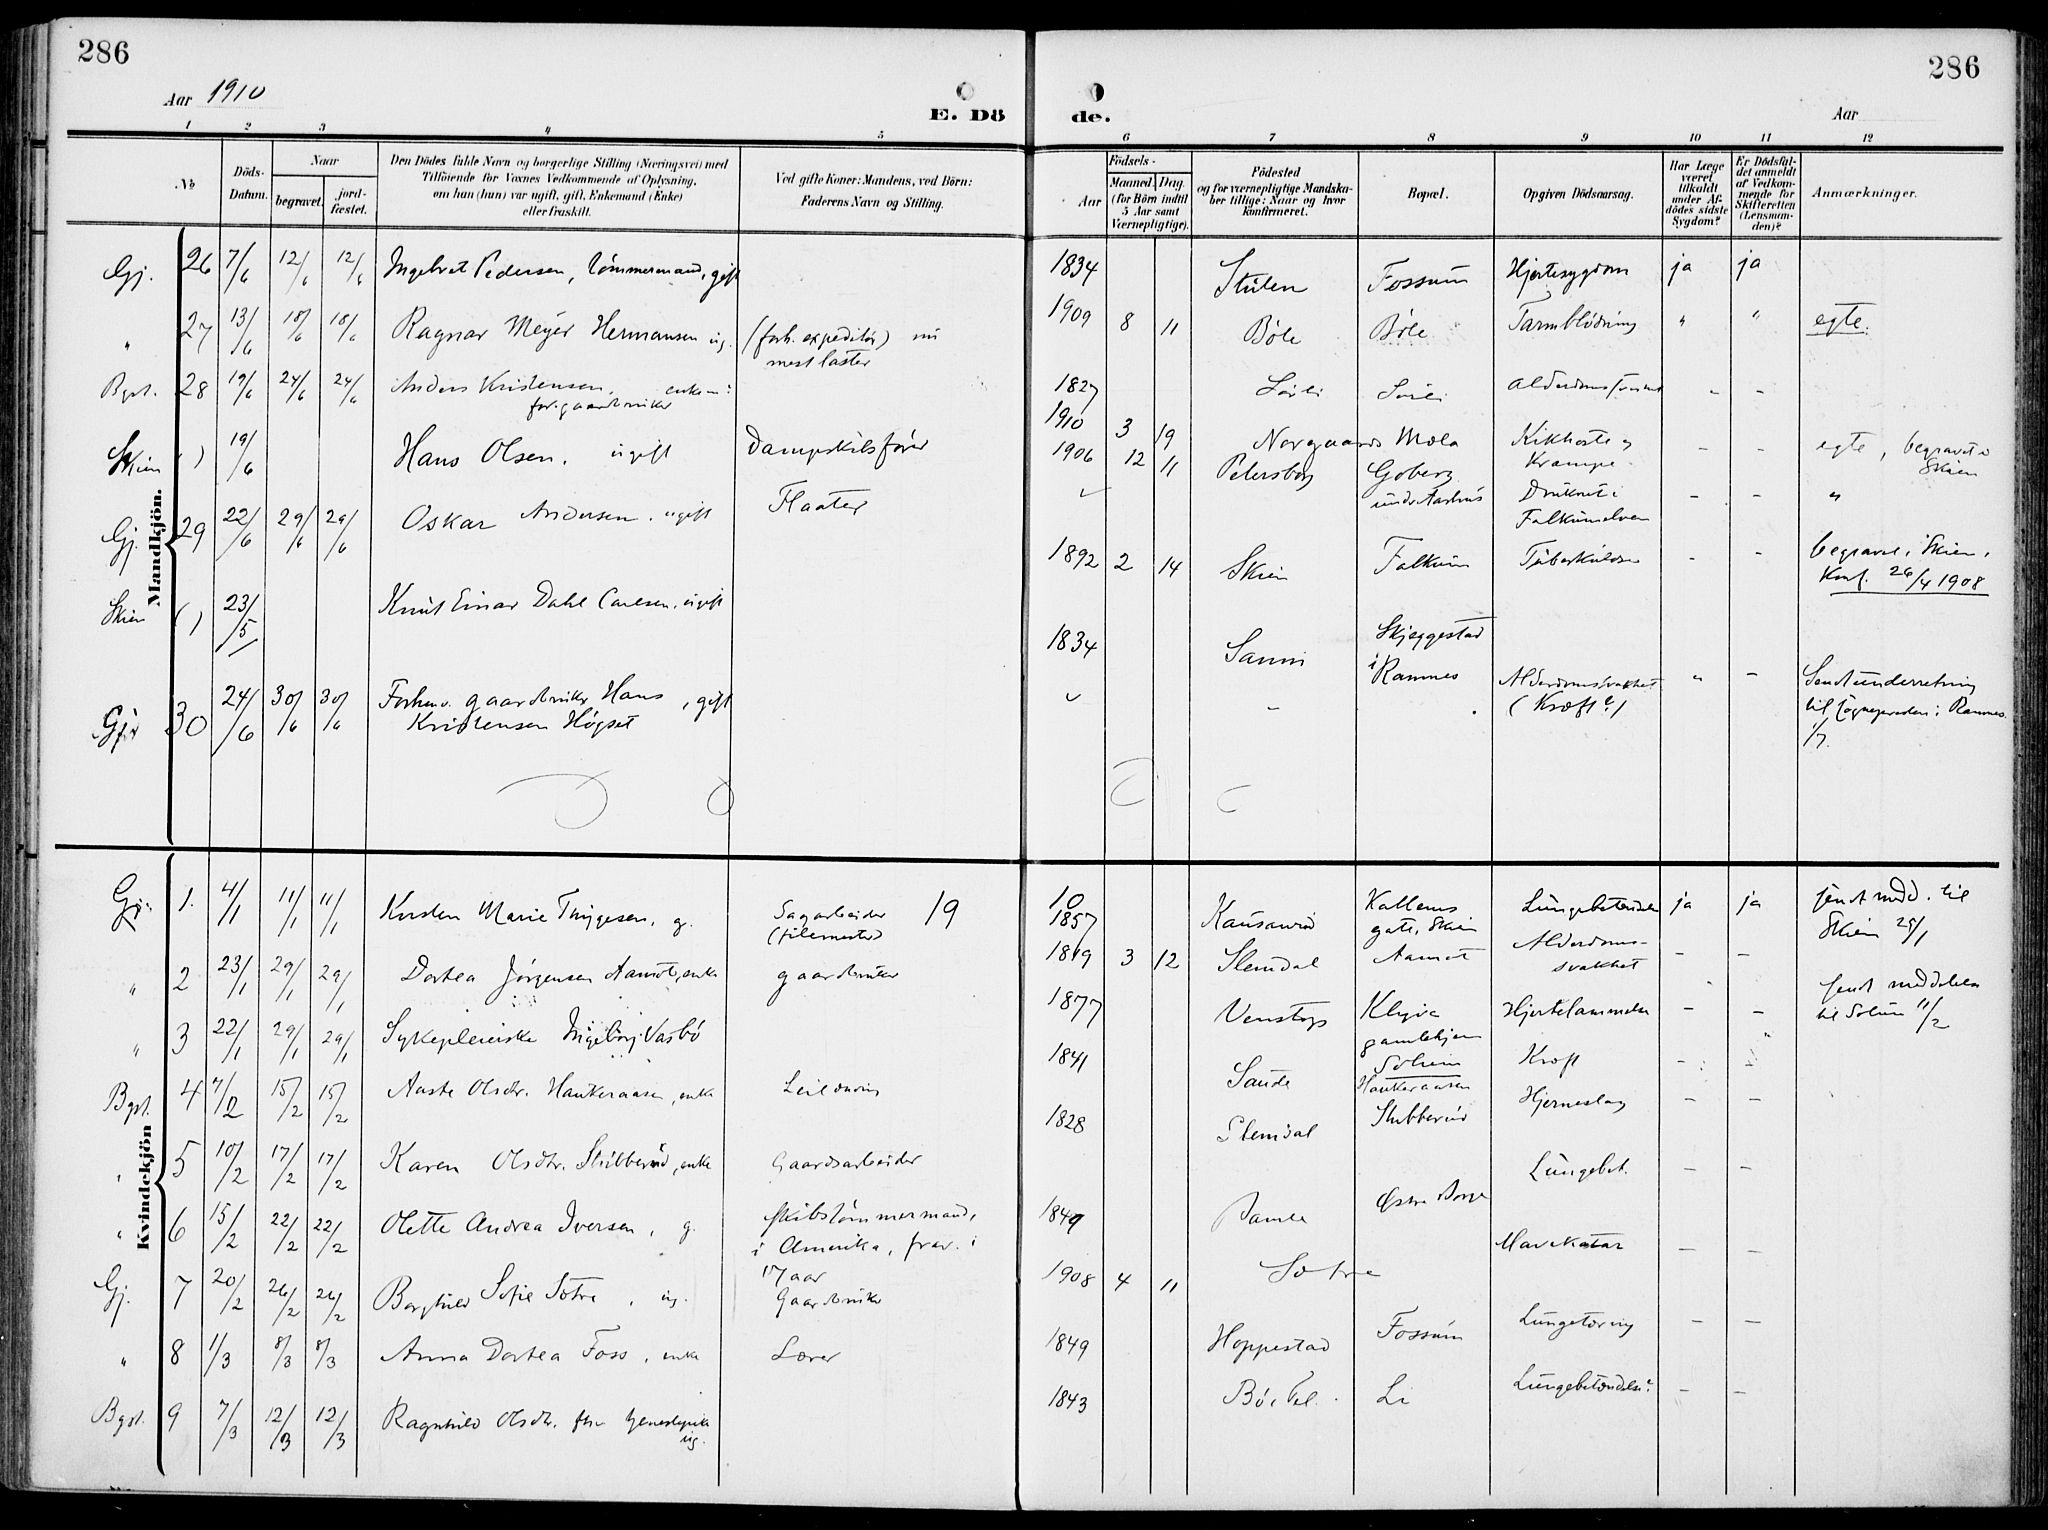 286
Aar 1910
E. Dö
1 2 3 4 5
№
Döds-
Datum.
Naar
begravet.
jord-
fæstet.
Den Dödes fulde Navn og borgerlige Stilling (Næringsvei) med
Tilföiende for Voxnes Vedkommende af Oplysning,
om han (hun) var ugift, gift, Enkemand (Enke)
eller fraskilt.
Ved gifte Koner: Mandens, ved Börn:
Faderens Navn og Stilling.
Mandkjön.
Gj. 26 7/6 12/6 12/6 Ingebret Pedersen, tømmermand, gift
" 27 13/6 18/6 18/6 Ragnar Meyer Hermansen ug. (forh. expeditør) nu
Bgst. 28 19/6 24/6 24/6 Anders Kristensen,
for. gaardbruker
Skien ( ) 19/6 Hans Olsen, ugift
Gj. 29 22/6 29/6 29/6 Oskar Andersen, ugift Flaater
Skien ( ) 23/5 Knut Einar Dahl Carlsen, ugift
Gj. 30 24/6 30/6 30/6 Forhenv. gaardbruker Hans
Kristensen Høgset , gift
Kvindekjön
Gj. 1. 4/1 11/1 11/1 Kirsten Marie Thygesen, g. Sagarbeider 19
" 2 23/1 29/1 29/1 Dortea Jørgensen Aamot, enke gaardbruker
" 3 22/1 29/1 29/1 Sykepleierske Ingeborg Vasbø
Bgst. 4 7/2 15/2 15/2 Aaste Olsdtr. Haukeraasen, enke Leilending
" 5 10/2 17/2 17/2 Karen Olsdtr. Stubberud, enke Gaardsarbeider
" 6 15/2 22/2 22/2 Olette Andrea Iversen, g. Skibstømmermand,
i Amerika, frav. i
17 aar
Gj. 7 20/2 26/2 26/2 Borghild Sofie Sotre, ug. Gaardbruker
" 8 1/3 8/3 8/3 Anna Dortea Foss, enke Lærer
Bgst. 9 7/3 12/3 12/3 Ragnhild Olsdtr. forv. tjenestepike
ug.
286
de.
Aar
6 7 8 9 10 11 12
Aar
Födsels-
Maaned. Dag.
(for Börn indtil
5 Aar samt
Værnepligtige).
Födested
og for værnepligtige Mandska-
ber tillige: Naar og hvor
konfirmeret.
Bopæl.
Opgiven Dödsaarsag.
Har Læge
været
tilkaldt
under Af-
dödes sidste
Sygdom?
Er Dödsfal-
det anmeldt
af Vedkom-
mende for
Skifteretten
(Lensman-
den)?
Anmærkninger.
1834 Stulen Fossum Hjertesygdom ja ja
1909 8 11 Bøle Bøle Tarmblødning " " egte.
1827 Sørli Sørli
1910 3 19 Norgaards Mæla Kikhoste og
Krampe - - egte, begravet i
Skien
1906 12 11 Petersborg Goberg
Druknet i
Falkumelven - - "
1892 2 14 Skien Falkum Tuberkulose - - begravet i Skien,
Konf. 26/4 1908
1834 Sanni Skjeggestad
i Ramnes Alderdomssvakhet
(Kræft?) " - Sendt underretning
til sognepresten i Ramnes
1/7.
10
1857 Kausanrød
gate, Skien Lungebetændelse ja ja sendt medd. til
Skien 25/1
1819 3 12 Slemdal Aamot Alderdoms-
svakhet - -
1877 Venstøp Klyva
gamlehjem
Solum Hjertelammelse - - sendt meddelelse
til Solum 11/2
1841 Saude Haukeraasen Kræft - -
1828 Slemdal Stubberud Hjerneslag - -
1849 Bamle Østre Borge Lungebet. - -
1908 4 11 Sotre Mavekatar - -
1849 Hoppestad Fossum Lungetæring - -
1843 Bø i Tel. Li Lungebetændelse? - -